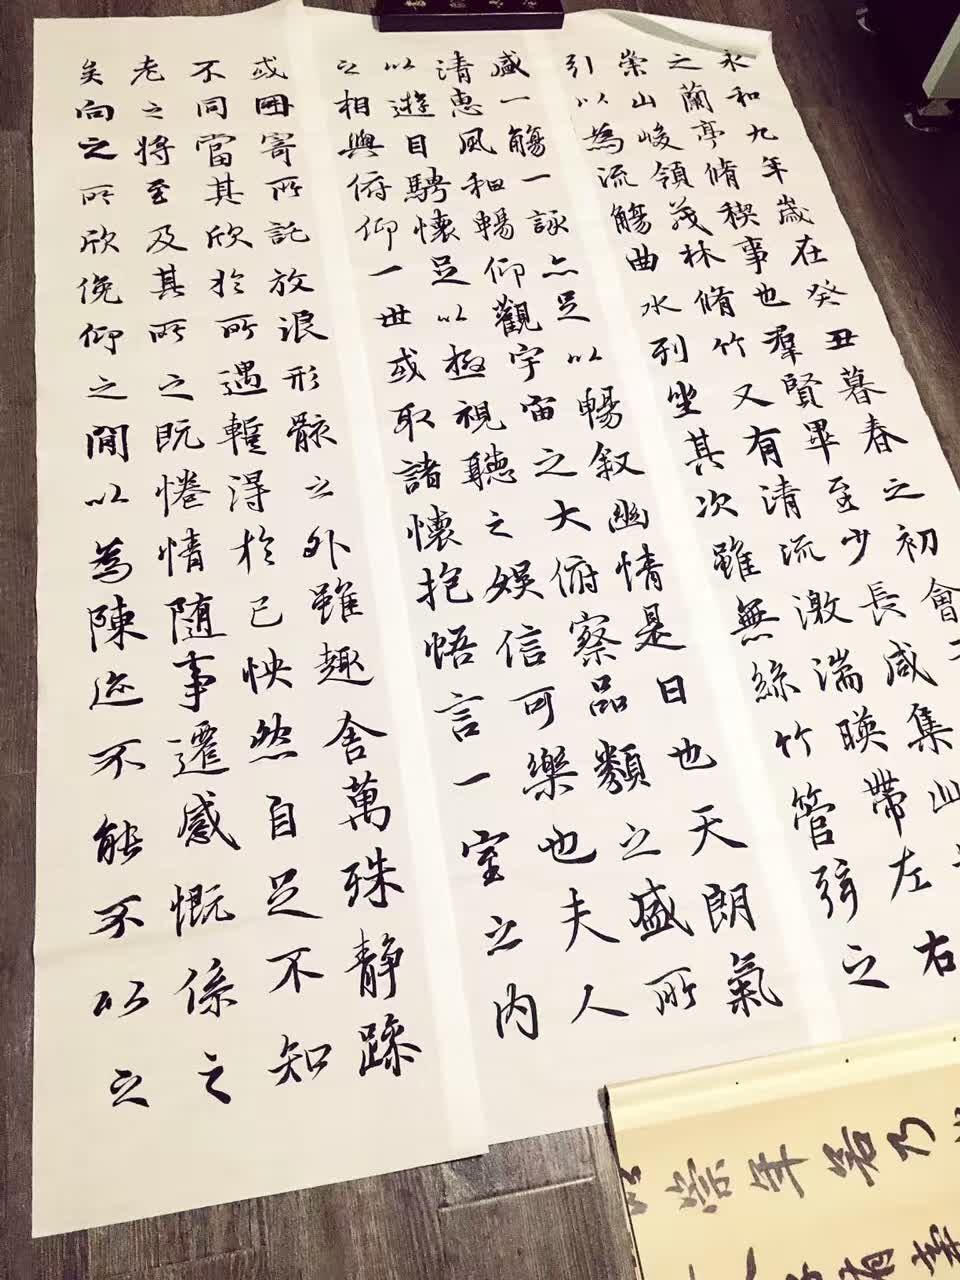 永和九年歲在癸丑暮春之初會
之蘭亭脩稧事也羣賢畢至少長咸集此
崇山峻領茂林脩竹又有清流激湍暎帶左右
引以為流觴曲水列坐其次雖無絲竹管弦之
盛一觴一詠亦足以暢叙幽情是日也天朗氣
清惠風和暢仰觀宇宙之大俯察品類之盛所
以遊目騁懷足以極視聽之娛信可樂也夫人
之相與俯仰一世或取諸懷抱悟言一室之內
或因寄所託放浪形骸之外雖趣舍萬殊静躁
不同當其欣於所遇蹔得於己怏然自足不知
老之將至及其所之既惓情随事遷感慨係之
矣向之所欣俛仰之間以為陳迹不能不以之